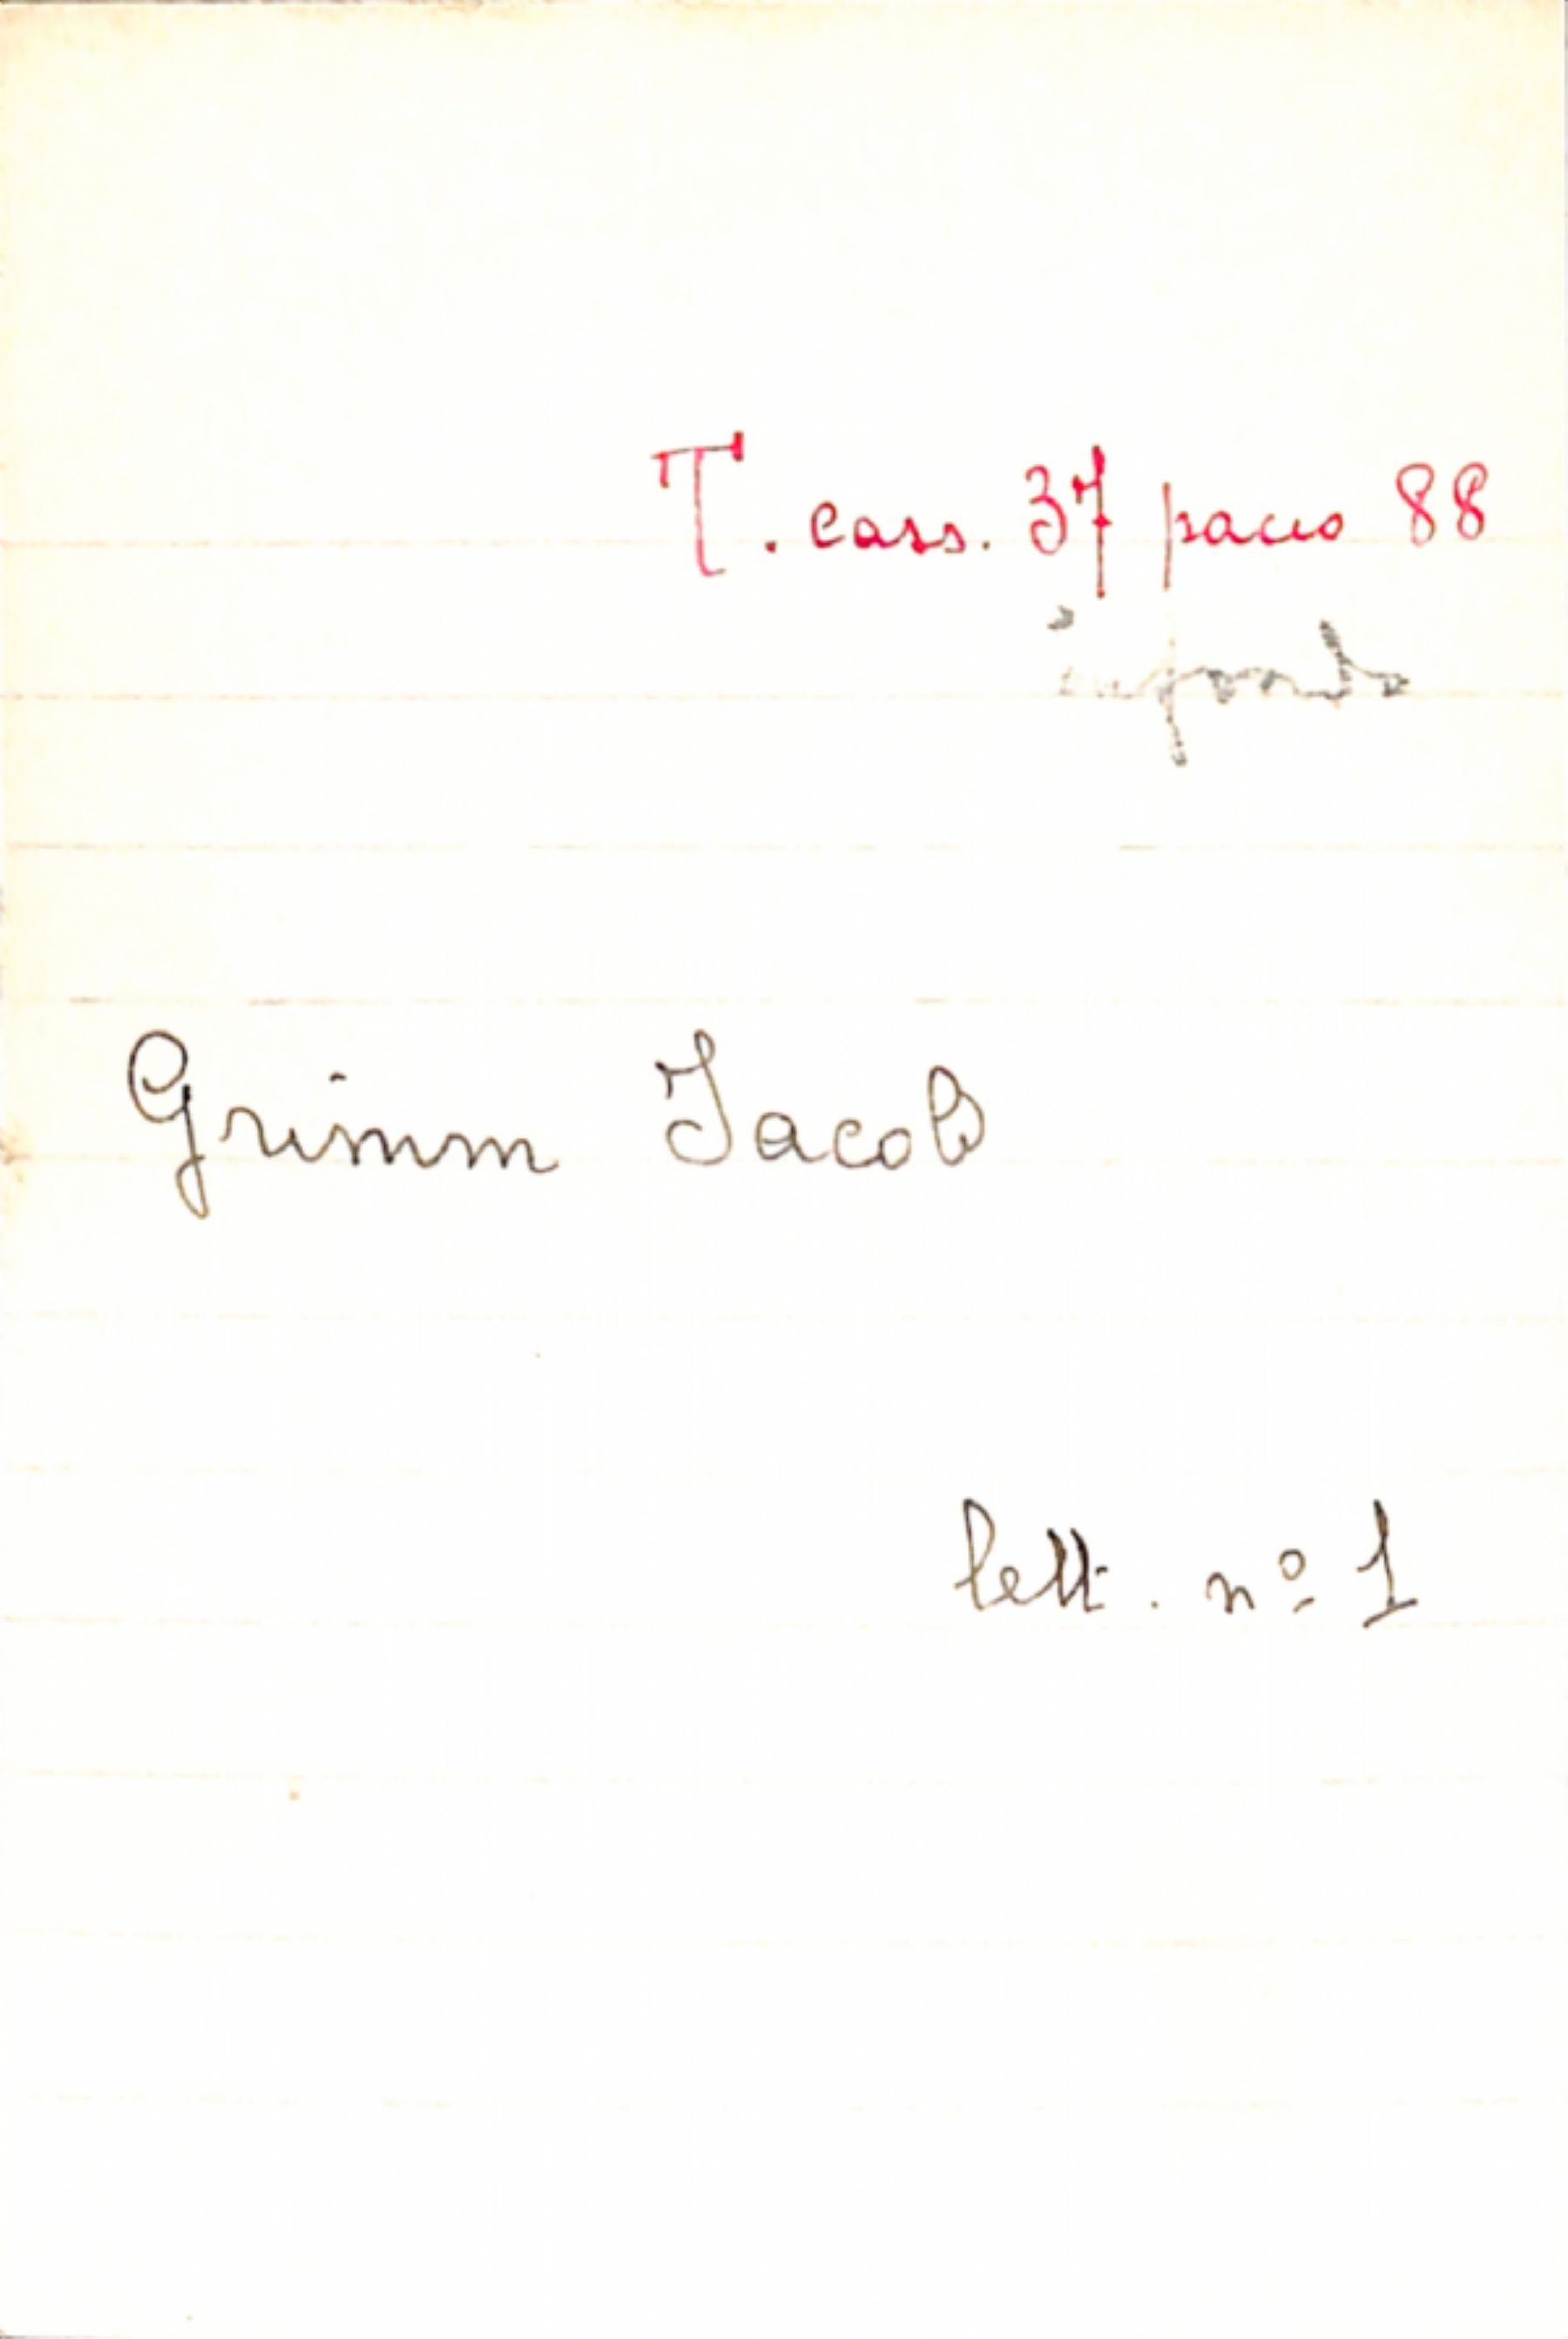 T. cass. 37 pacco 88
in fondo
Grimm Jacob
lett. nº 1